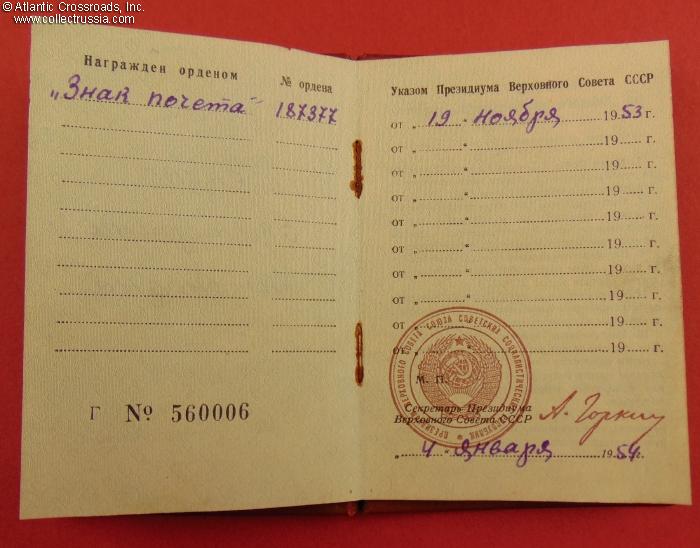 © Atlantic Crossroads, Inc.
www.collectrussia.com
Награжден орденом
№ ордена
„Знак почета“ 187377
Г № 560006
Указом Президиума Верховного Совета СССР
от „ 19 “ ноября 1953 г.
от „ “ 19 г.
от „ “ 19 г.
от „ “ 19 г.
от „ “ 19 г.
от „ “ 19 г.
от „ “ 19 г.
от „ “ 19 г.
от „ “ 19 г.
от „ “ 19 г.
М. П.
Секретарь Президиума
Верховного Совета СССР
А. Горкин
„ 4 “ января 1954 г.
ПРЕЗИДИУМ ВЕРХОВНОГО СОВЕТА СОЮЗА СОВЕТСКИХ СОЦИАЛИСТИЧЕСКИХ РЕСПУБЛИК